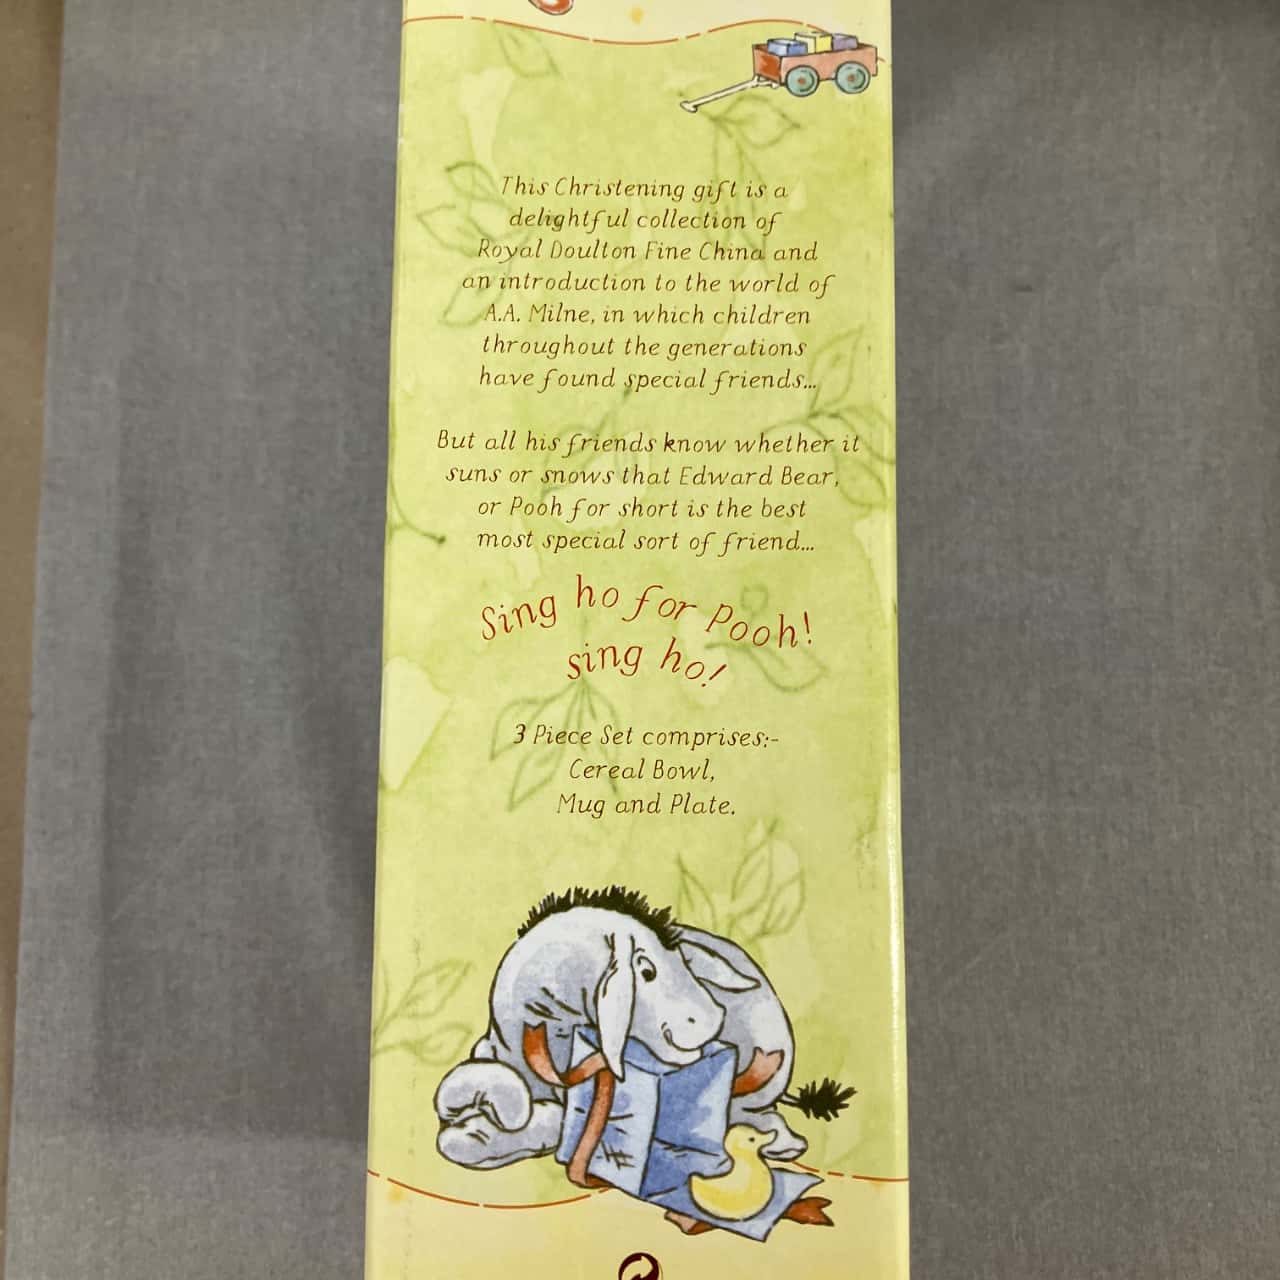 This Christening gift is a
delightful collection of
Royal Doulton Fine China and
an introduction to the world of
A.A. Milne, in which children
throughout the generations
have found special friends...
But all his friends know whether it
suns or snows that Edward Bear,
or Pooh for short is the best
most special sort of friend...
Sing ho for Pooh!
sing ho!
3 Piece Set comprises:-
Cereal Bowl,
Mug and Plate.